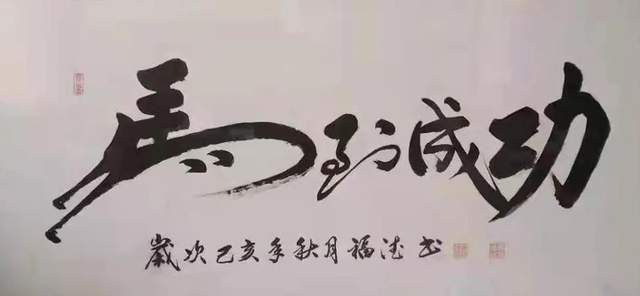 馬到成功
歲次己亥年秋月福德書